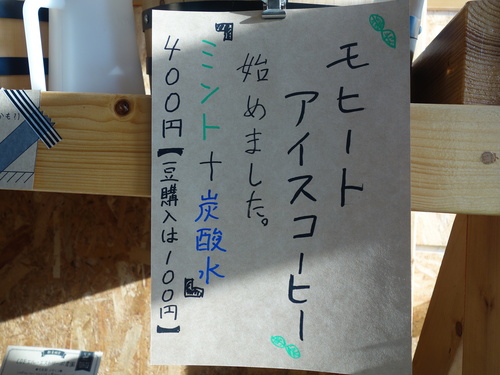 モヒート
アイスコーヒー
始めました。
『ミント+炭酸水』
400円【豆購入は100円】